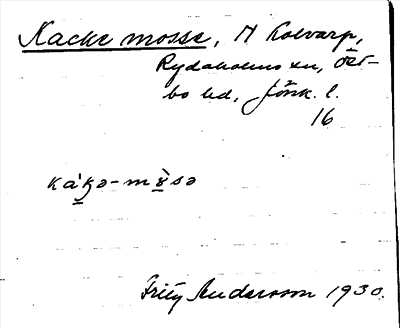 Kacke mosse, N Kolvarp,
Rydaholms sn, Öst-
bo hd, Jönk. l.
16
kàkə-mòsə
Fritz Andersson 1930.